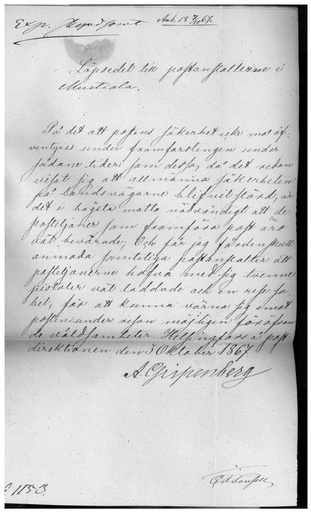 Ank. 18 5/10 67.
Löpsedel till postanstalterne i
Mustiala.
På det att postens säkerhet icke må äf-
ventyras under framfordlingen under
sådane tider som dessa, då det redan
visat sig att allmänna säkerheten
på landsvägarne blifvit störd, är
det i högsta måtto nödvändigt att de
postiljoner som framföra post äro
väl bevärade; Och får jag för den skull
anmoda samtelige postanstalter att
postiljonerne hafva med sig tvenne
pistoler väl laddade och en
bel, för att kunna värna sig emot
posten under resan möjligen
de våldsamheter. Helsingfors å post
direktionen den 3 Oktober 1867.
A. Gripenberg